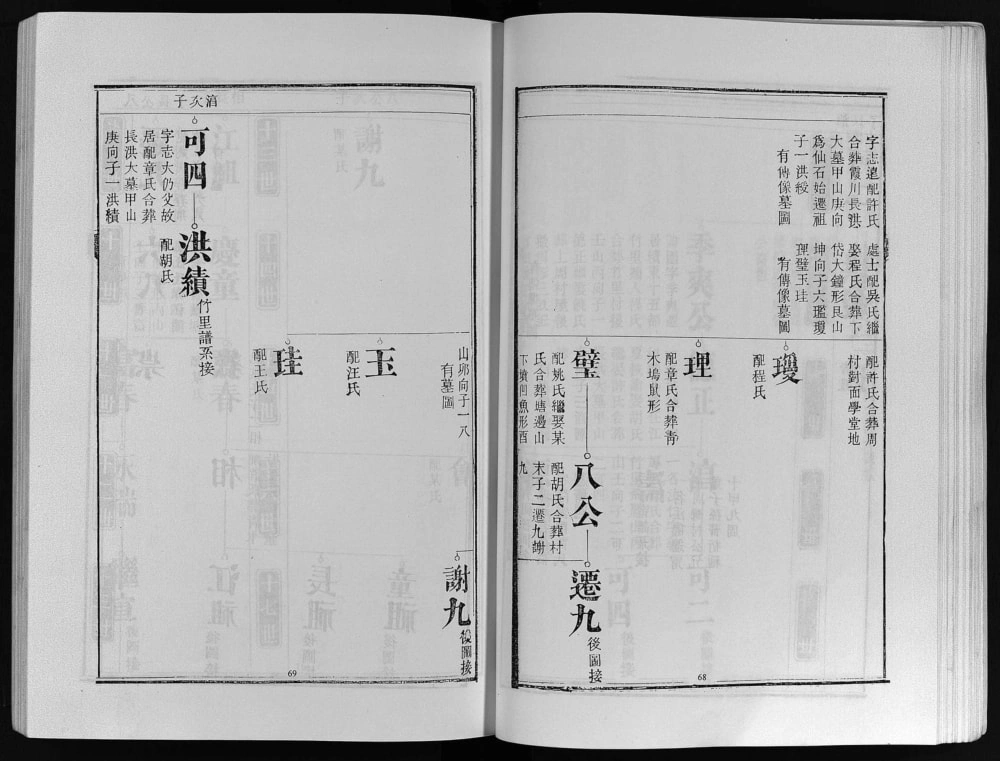 字志道配許氏
合葬霞川長洪
大墓甲山庚向
爲仙石始遷祖
子一洪綬
有傳像墓圖
處士配吳氏繼
娶程氏合葬下
岱大鐘形艮山
坤向子六璫瓊
理璧玉珪
有傳像墓圖
配許氏合葬周
村對面學堂地
瓊
配程氏
理
配章氏合葬靑
木塢鼠形
璧
配姚氏繼娶某
氏合葬塘邊山
下墳田魚形酉
八公
配胡氏合葬村
末子二遷九謝
九
遷九
後圖接
68
山卯向子一八
有墓圖
謝九
後圖接
玉
配汪氏
珪
配王氏
滳次子
可四
字志大仍父故
居配章氏合葬
長洪大墓甲山
庚向子一洪績
洪績
竹里譜系接
配胡氏
69